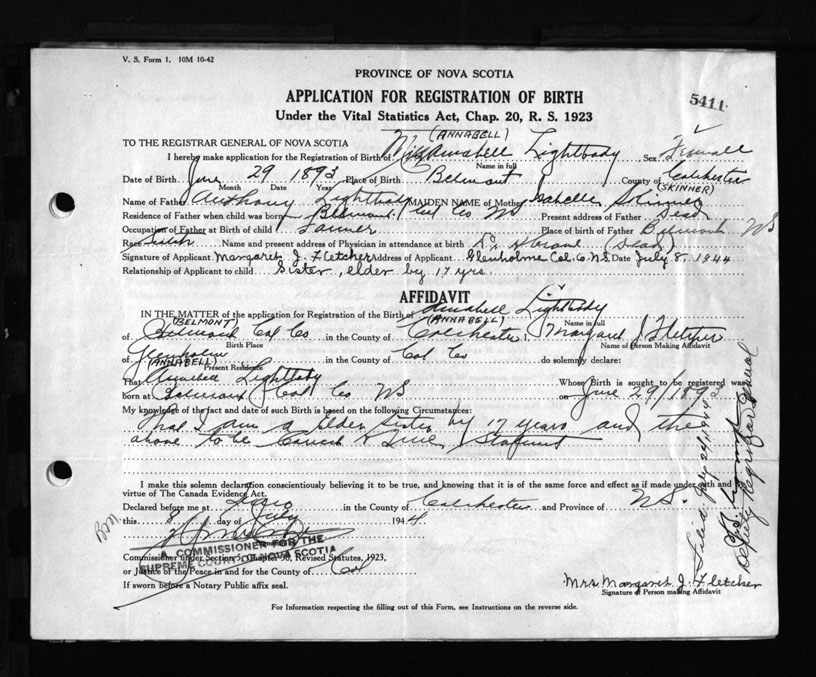 V. S. Form 1. 10M 10-42
PROVINCE OF NOVA SCOTIA
5411
APPLICATION FOR REGISTRATION OF BIRTH
Under the Vital Statistics Act, Chap. 20, R. S. 1923
(ANNABELL)
TO THE REGISTRAR GENERAL OF NOVA SCOTIA
I hereby make application for the Registration of Birth of Lightbody Sex Female
Name in full
Date of Birth June 29 1893 Place of Birth Belmont County of Colchester
Month Date Year
(SKINNER)
Name of Father Anthony Lightbody MAIDEN NAME of Mother Isabelle Skinner
Residence of Father when child was born Belmont Col Co NS Present address of Father Dead
Occupation of Father at Birth of child Farmer Place of birth of Father Belmont NS
Race Name and present address of Physician in attendance at birth Dr (Dead)
Signature of Applicant Margaret J. Fletcher Address of Applicant Glenholme Col. Co. N.S. Date July 8. 1944
Relationship of Applicant to child Sister, elder by 17 yrs.
AFFIDAVIT
IN THE MATTER of the application for Registration of the Birth of Annabell Lightbody
(BELMONT) (ANNABELL) Name in full
of Belmont Col Co in the County of Colchester I, Margaret J Fletcher
Birth Place Name of Person Making Affidavit
of Glenholm in the County of Col Co do solemnly declare:
(ANNABELL) Present Residence
That Lightbody Whose Birth is sought to be registered was
born at Belmont Col Co NS on June 29/1893
My knowledge of the fact and date of such Birth is based on the following Circumstances:
That I am a Elder Sister by 17 years and the
above to be Correct & True Statement
I make this solemn declaration conscientiously believing it to be true, and knowing that it is of the same force and effect as if made under oath and by
virtue of The Canada Evidence Act.
Declared before me at Truro in the County of Colchester and Province of NS.
this 8 day of July 1944
A COMMISSIONER FOR THE
SUPREME COURT OF NOVA SCOTIA
Commissioner under Section 5, Chapter 38, Revised Statutes, 1923,
or Justice of the Peace in and for the County of Col
If sworn before a Notary Public affix seal.
Mrs. Margaret J. Fletcher
Signature of Person making Affidavit
For Information respecting the filling out of this Form, see Instructions on the reverse side.
Deputy Registrar General